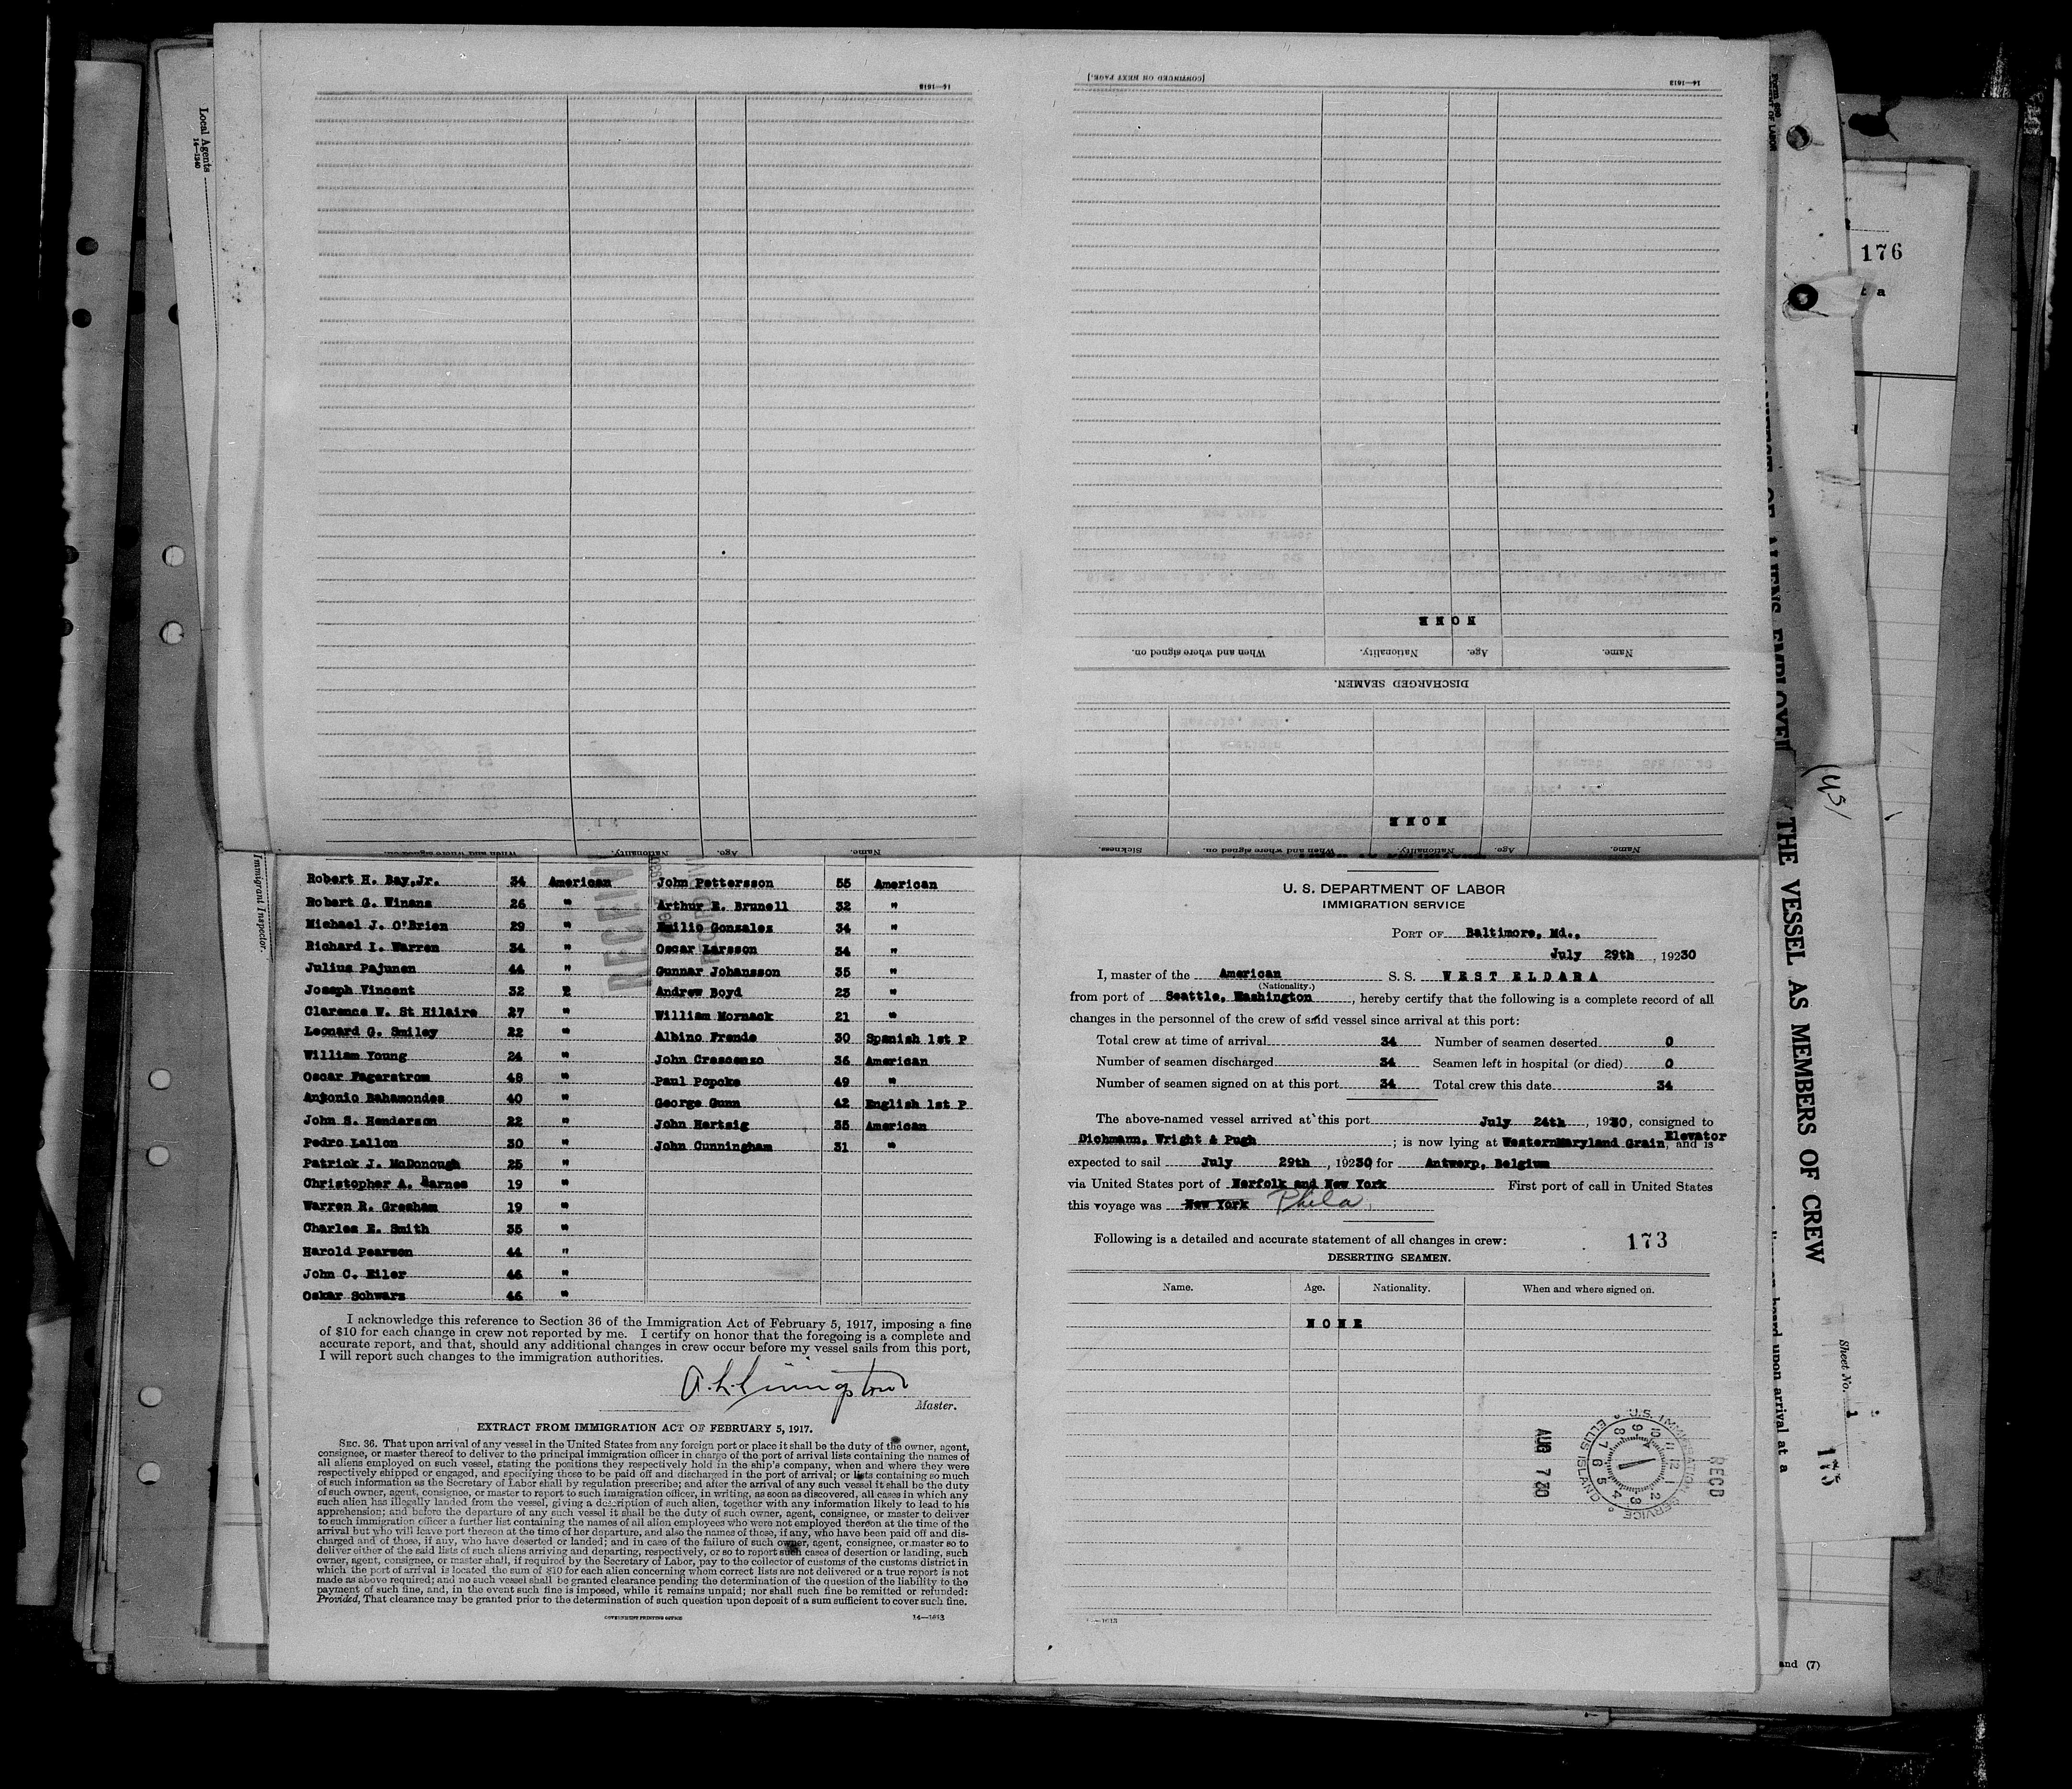 Local Agents
14—1240
Immigrant Inspector.
14—1613
[CONTINUED ON NEXT PAGE.]
14—1613
NONE
Name. Age. Nationality. When and where signed on.
DISCHARGED SEAMEN.
NONE
Name. Age. Nationality. When and where signed on. Sickness.
Name. Age. Nationality. When and where signed on.
Robert H. Bay,Jr. 34 American John Pettersson 55 American
Robert G. Winans 26 " Arthur E. Brunell 32 "
Michael J. O'Brien 29 " Emilio Gonzalez 34 "
Richard I. Warren 34 " Oscar Larsson 34 "
Julius Pajunen 44 " Gunnar Johansson 35 "
Joseph Vincent 32 2 Andrew Boyd 23 "
Clarence W. St Hilaire 27 " William Mornack 21 "
Leonard G. Smiley 22 " Albino Frende 30 Spanish 1st P
William Young 24 " John Crescenzo 36 American
Oscar Fagerstrom 48 " Paul Popcke 49 "
Antonio Bahamondes 40 " George Gunn 42 English 1st P
John S. Henderson 22 " John Hertzig 35 American
Pedro Lallon 30 " John Cunningham 31 "
Patrick J. McDonough 25 "
Christopher A. Barnes 19 "
Warren R. Gresham 19 "
Charles E. Smith 35 "
Harold Pearson 44 "
John C. Eiler 46 "
Oskar Schwarz 46 "
I acknowledge this reference to Section 36 of the Immigration Act of February 5, 1917, imposing a fine
of $10 for each change in crew not reported by me. I certify on honor that the foregoing is a complete and
accurate report, and that, should any additional changes in crew occur before my vessel sails from this port,
I will report such changes to the immigration authorities.
A. L. Livingston
Master.
EXTRACT FROM IMMIGRATION ACT OF FEBRUARY 5, 1917.
SEC. 36. That upon arrival of any vessel in the United States from any foreign port or place it shall be the duty of the owner, agent,
consignee, or master thereof to deliver to the principal immigration officer in charge of the port of arrival lists containing the names of
all aliens employed on such vessel, stating the positions they respectively hold in the ship's company, when and where they were
respectively shipped or engaged, and specifying those to be paid off and discharged in the port of arrival; or lists containing so much
of such information as the Secretary of Labor shall by regulation prescribe; and after the arrival of any such vessel it shall be the duty
of such owner, agent, consignee, or master to report to such immigration officer, in writing, as soon as discovered, all cases in which any
such alien has illegally landed from the vessel, giving a description of such alien, together with any information likely to lead to his
apprehension; and before the departure of any such vessel it shall be the duty of such owner, agent, consignee, or master to deliver
to such immigration officer a further list containing the names of all alien employees who were not employed thereon at the time of the
arrival but who will leave port thereon at the time of her departure, and also the names of those, if any, who have been paid off and dis-
charged and of those, if any, who have deserted or landed; and in case of the failure of such owner, agent, consignee, or master so to
deliver either of the said lists of such aliens arriving and departing, respectively, or so to report such cases of desertion or landing, such
owner, agent, consignee, or master shall, if required by the Secretary of Labor, pay to the collector of customs of the customs district in
which the port of arrival is located the sum of $10 for each alien concerning whom correct lists are not delivered or a true report is not
made as above required; and no such vessel shall be granted clearance pending the determination of the question of the liability to the
payment of such fine, and, in the event such fine is imposed, while it remains unpaid; nor shall such fine be remitted or refunded:
Provided, That clearance may be granted prior to the determination of such question upon deposit of a sum sufficient to cover such fine.
GOVERNMENT PRINTING OFFICE 14—1613
U. S. DEPARTMENT OF LABOR
IMMIGRATION SERVICE
PORT OF Baltimore, Md.,
July 29th , 1930
I, master of the American S. S. WEST ELDARA
(Nationality.)
from port of Seattle, Washington, hereby certify that the following is a complete record of all
changes in the personnel of the crew of said vessel since arrival at this port:
Total crew at time of arrival 34 Number of seamen deserted 0
Number of seamen discharged 34 Seamen left in hospital (or died) 0
Number of seamen signed on at this port 34 Total crew this date 34
The above-named vessel arrived at this port July 24th, 1930, consigned to
Dichmann, Wright & Pugh ; is now lying at WesternMaryland Grain Elevator, and is
expected to sail July 29th, 19230 for Antwerp, Belgium
via United States port of Norfolk and New York First port of call in United States
this voyage was New York Phila.
Following is a detailed and accurate statement of all changes in crew: 173
DESERTING SEAMEN.
Name. Age. Nationality. When and where signed on.
NONE
REC'D
U.S. IMMIGRATION SERVICE ELLIS ISLAND
12 1 2 3 4 5 6 7 8 9 10 11
AUG 7 '30
14—1613
176
THE VESSEL AS MEMBERS OF CREW
Sheet No. 1
175
board upon arrival at a
and (7)